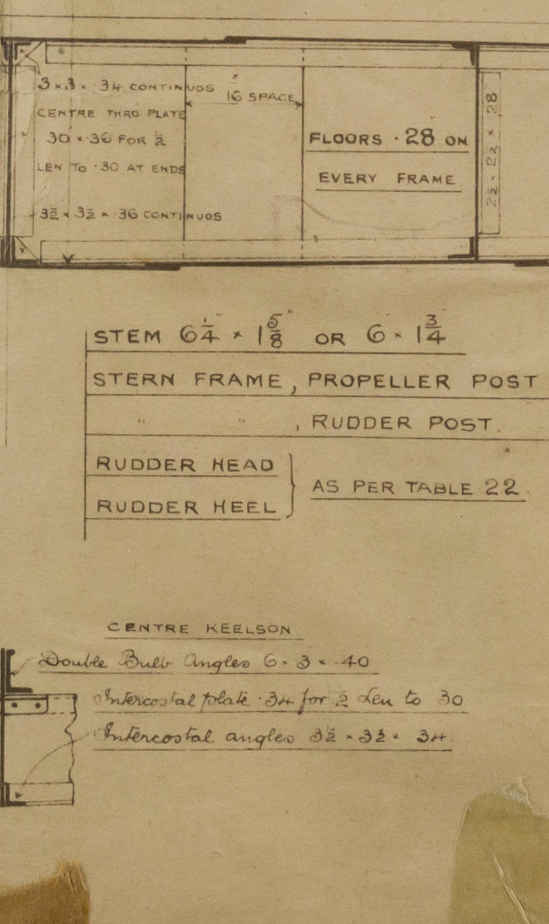 3 × 3 × ·34 CONTINUOS
CENTRE THRO PLATE
30 × ·36 FOR ½
LEN TO ·30 AT ENDS
3½ × 3½ × ·36 CONTINUOS
16" SPACE
FLOORS ·28 ON
EVERY FRAME
2½ × 2½ × ·28
STEM 6¼" × 1⅝" OR 6 × 1¾
STERN FRAME, PROPELLER POST
" " , RUDDER POST.
RUDDER HEAD
RUDDER HEEL
AS PER TABLE 22
CENTRE KEELSON
Double Bulb Angles 6 × 3 × ·40
Intercostal plate ·34 for ½ Len to 30
Intercostal angles 3½ × 3½ × 34